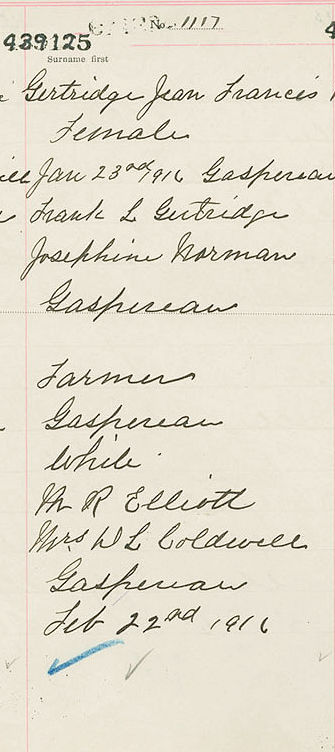 No. 1117
439125
Surname first
Gertridge Jean Francis
Female
Jan 23rd 1916 Gaspereau
Frank L Gertridge
Josephine Norman
Gaspereau
Farmer
Gaspereau
White
M R Elliott
Mrs W L Coldwell
Gaspereau
Feb 22nd 1916